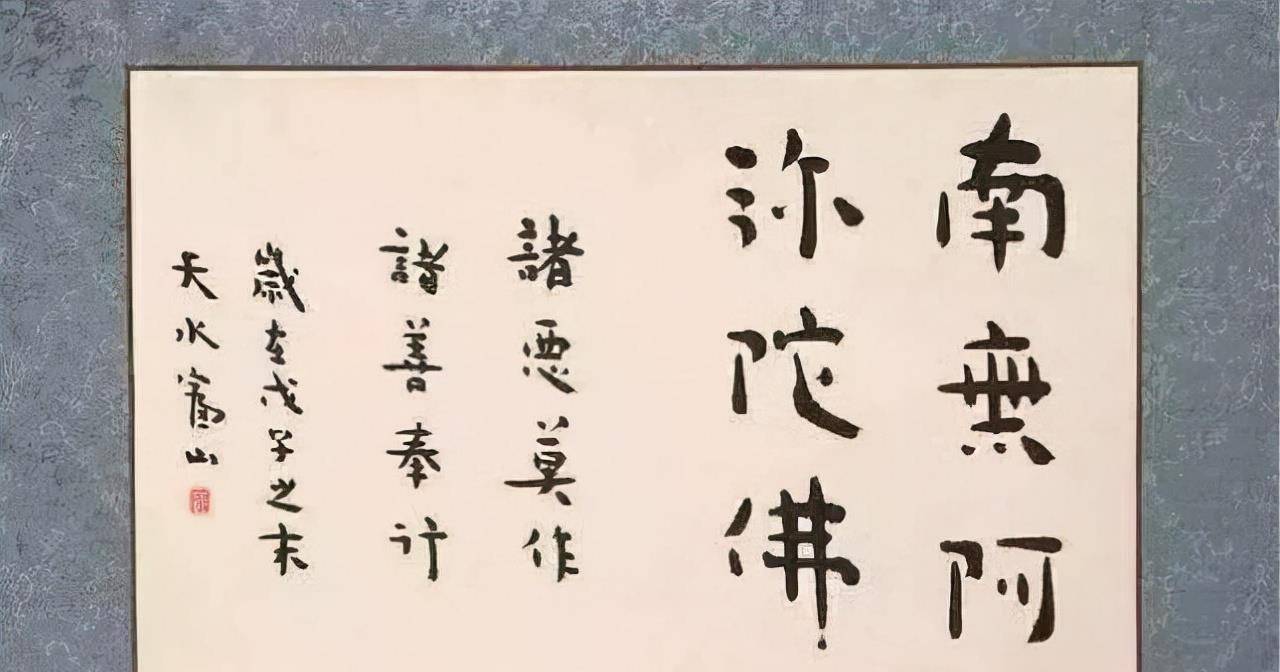 南無阿
弥陀佛
諸惡莫作
諸善奉行
歲在戊子之末
天水嵩山